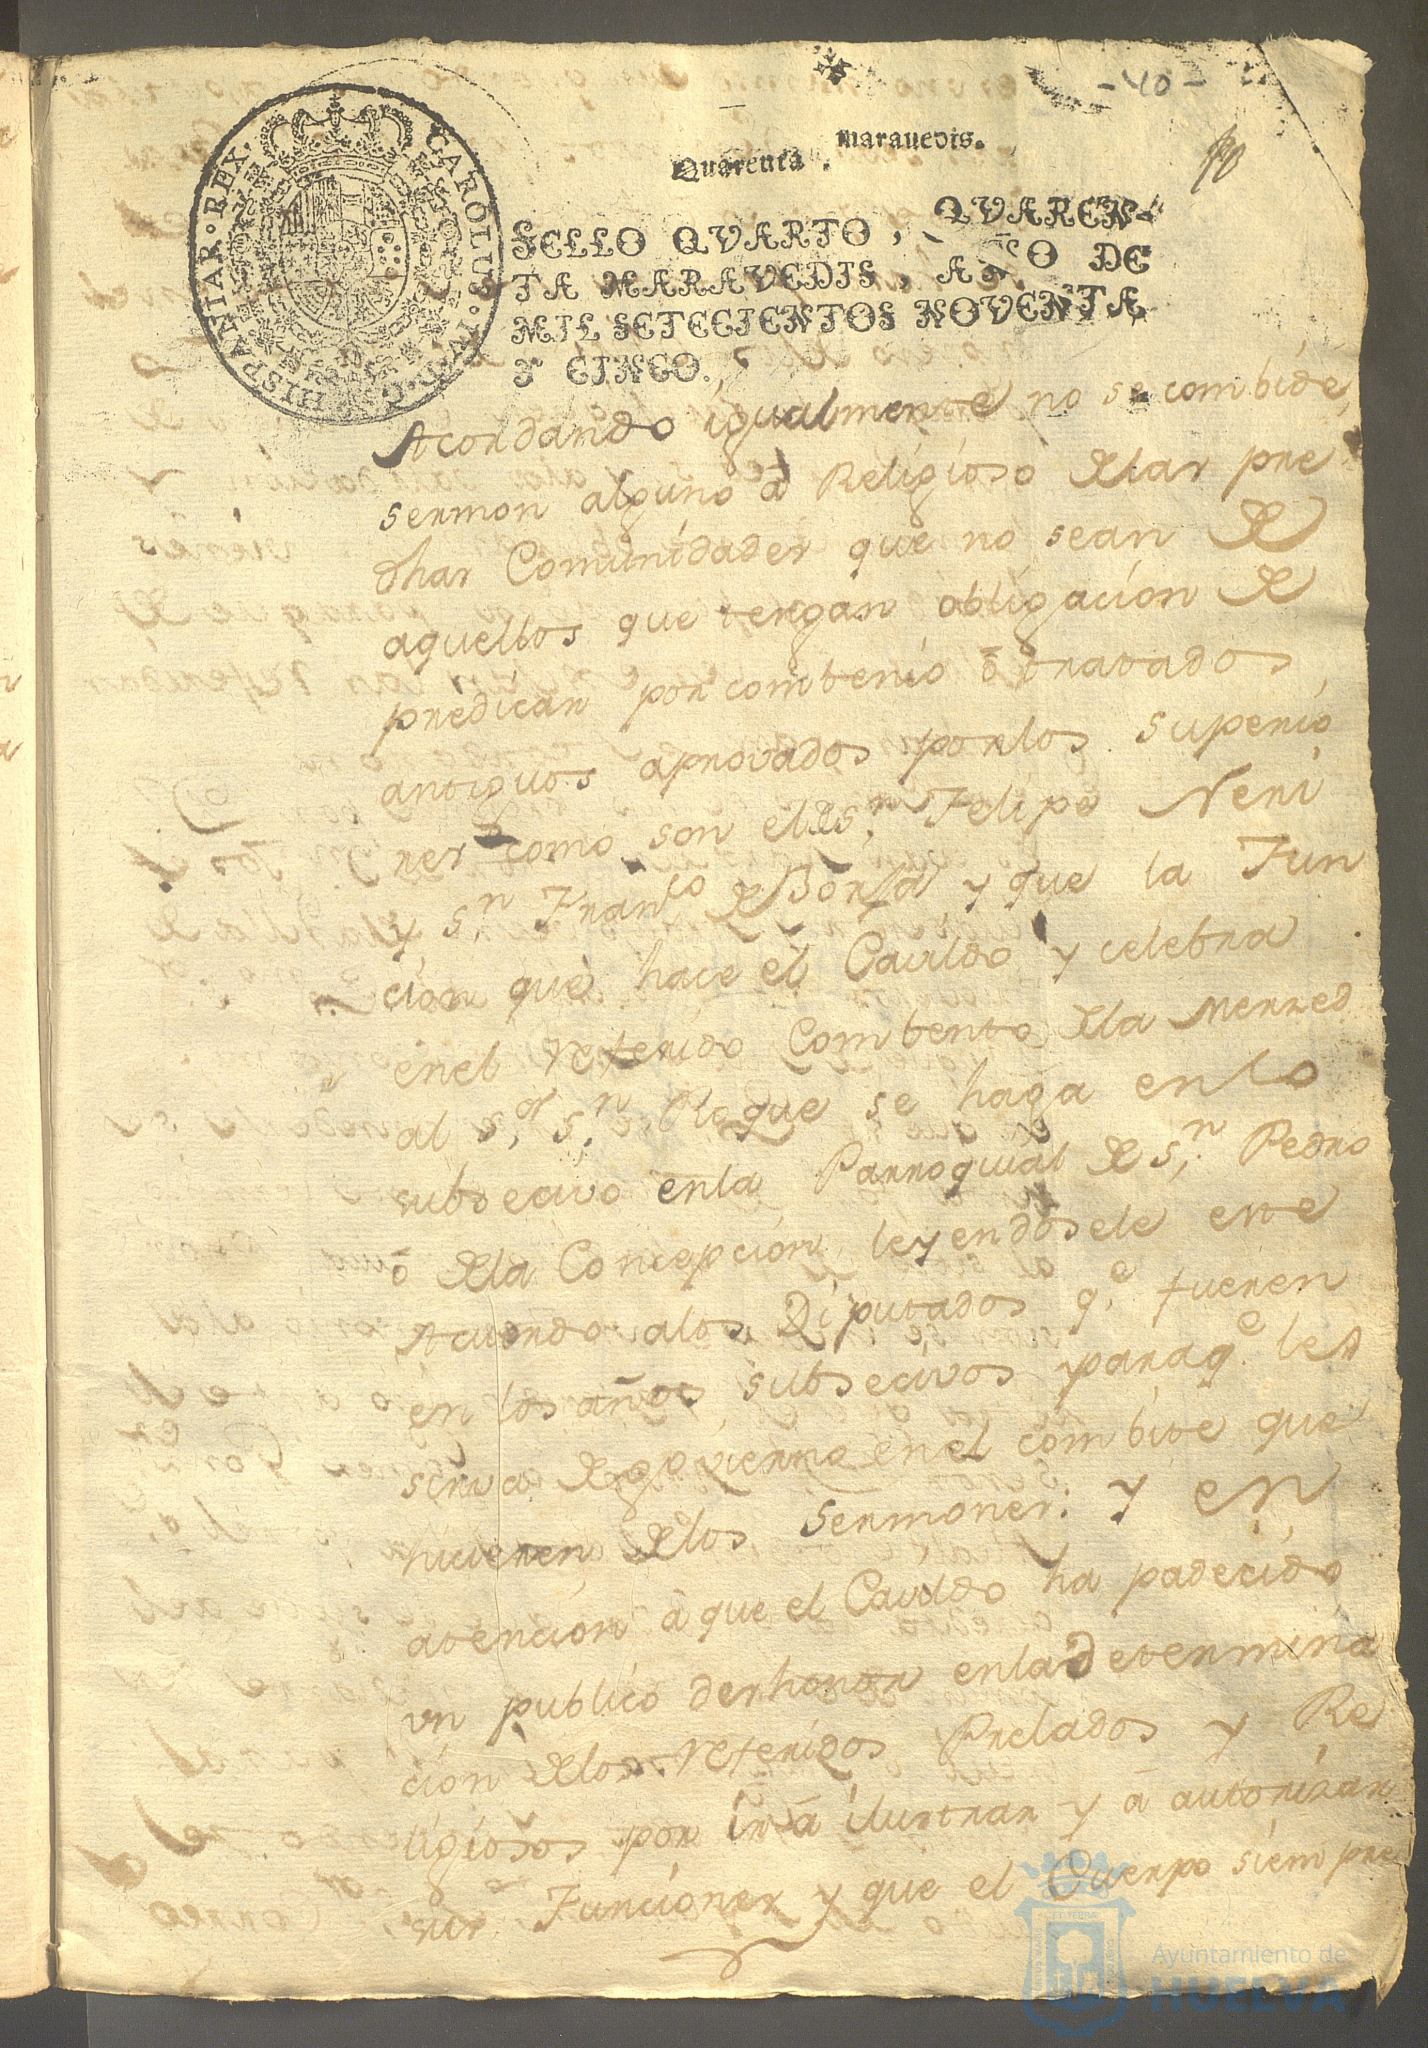 - 40 -
40
Quarenta maravedis.
CAROLUS · IV · D · G · HISPANIAR · REX ·
SELLO QVARTO, QVAREN-
TA MARAVEDIS, AÑO DE
MIL SETECIENTOS NOVENTA
Y CINCO.
Acordando igualmente no se combide
sermon alguno à Religioso delas pre
dhas Comunidades que no sean de
aquellos que tengan obligacion de
predicar por combenio ô tratados
antiguos aprovados porlos superio
res como son el de Sn. Felipe Neri
y Sn. Franco de Borja y que la Fun
cion que hace el Cavildo y celebra
enel referido Combento dela Merzed
al Sor. Sn. Roque se haga en lo
subsecivo enla Parroquial de Sn. Pedro
ô dela Concepcion leyendosele este
Acuerdo alos Diputados qe. fueren
en los años subsecivos paraqe. les
sirva de govierno enel combite que
hicieren delos sermones: y en
atencion à que el Cavildo ha padecido
vn publico deshonor enla determina
cion delos referidos Prelados y Re
ligiosos por ir â ilustrar y â autorizar
sus Funciones y que el Cuerpo siempre
Ayuntamiento de
HUELVA